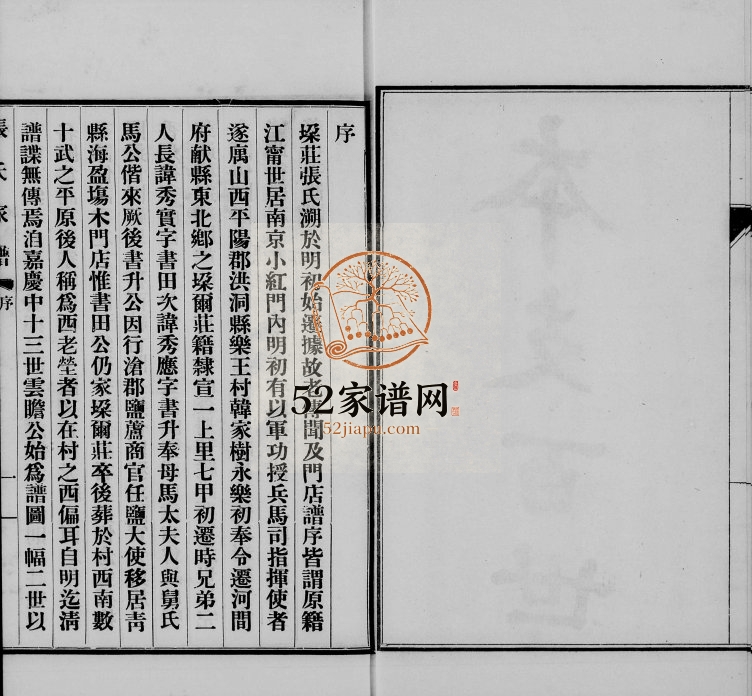 序
垜莊張氏溯於明初始遷據故老傳聞及門店譜序皆謂原籍
江甯世居南京小紅門內明初有以軍功授兵馬司指揮使者
遂寓山西平陽郡洪洞縣樂王村韓家樹永樂初奉令遷河間
府献縣東北鄉之垜爾莊籍隸宣一上里七甲初遷時兄弟二
人長諱秀實字書田次諱秀應字書升奉母馬太夫人與舅氏
馬公偕來厥後書升公因行滄郡鹽蘆商官任鹽大使移居靑
縣海盈塲木門店惟書田公仍家垜爾莊卒後葬於村西南數
十武之平原後人稱爲西老塋者以在村之西偏耳自明迄淸
譜諜無傳焉洎嘉慶中十三世雲瞻公始爲譜圖一幅二世以
張氏家譜
序
一
52家谱网
52jiapu.com